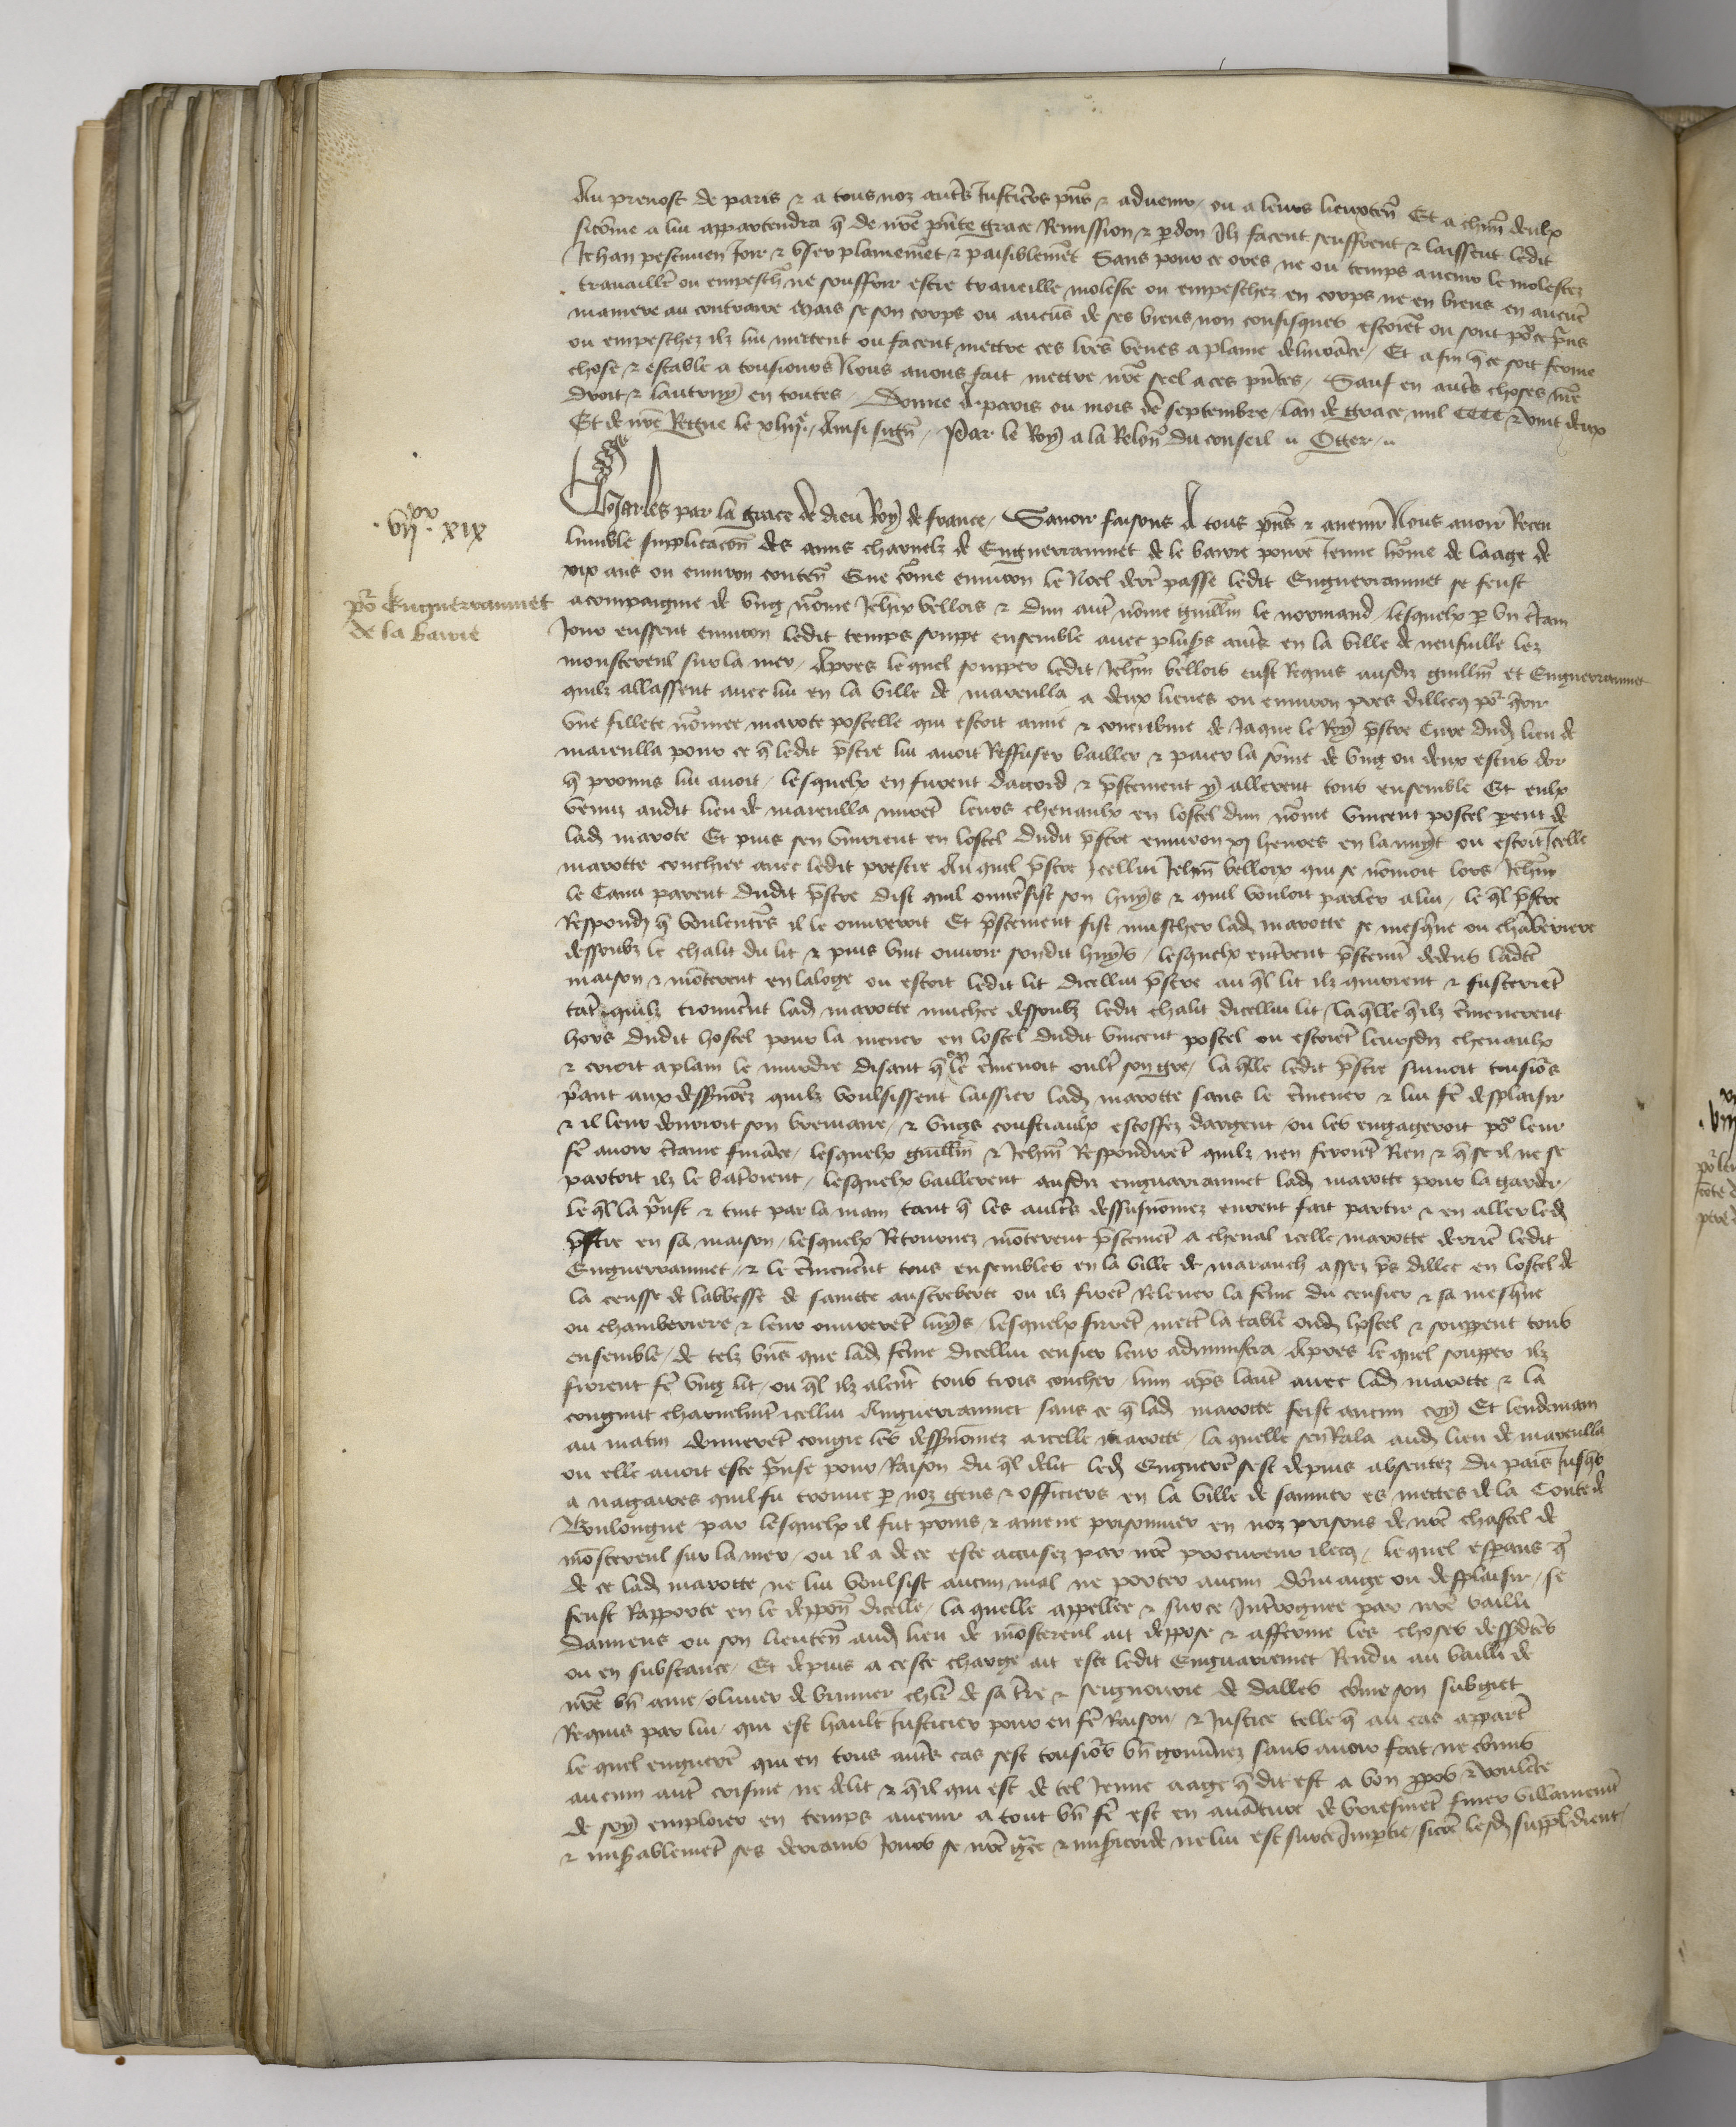 Au prevost de paris & a tous noz autrēs Justiciers pn̄s & advenir ou a leurs lieuxten̄ Et a chūn deulx
sicōme a lui appartendra q̄ de nrē pn̄te grace Remission & p̄don Ilz facent seuffrent & laissent ledit
Jehan Joir & user plainemēt & paisiblemēt Sans pour ce ores ne ou temps avenir le molester
travaillē ou empeschr̄ ne souffrir estre traveille moleste ou empeschez en corps ne en biens en aucūe
maniere au contraire Mais se son corps ou aucūs de ses biens non confisques estoiēt ou sont po' ce p̄ns
ou empeschez ilz lui mettent ou facent mettre ces lrēs veues a plaine delivrāce / Et afin q̄ ce soit ferme
chose & estable a tousiours Nous avons fait mettre nrē seel a ces pn̄tes / Sauf en autrēs choses nrē
droit & lautruy en toutes / Donne A paris ou mois de septembre / lan de grace mil CCCC & vint deux
Et de nrē Regne le xliije / Ainsi sign̄ / Par le Roy a la Relon̄ du conseil // Oger //
Charles par la grace de dieu Roy de france / Savoir faisons A tous pn̄s & avenir Nous avoir Receu
lumble supplicacōn des amis charnelz de Enguerrannet de le barre povre Jenne hōme de laage de
xix ans ou environ conten̄ Que cōme environ le Noel derr̄ passe ledit Enguerrannet se feust
acompaigne de ung nōme Jehan bellois & dun autr̄ nōme guillm̄ le normand / lesquelx p̄ un c̄tain
Jour eussent environ ledit temps soupe ensemble avec plus's autrēs en la ville de neufville lez
monstereul sur la mer / Apres le quel soupper ledit Jehan bellois eust Requis ausdiz guillm̄ et Enguerrannet
quilz allassent avec lui en la ville de mareulla a deux lieues ou environ pres dillecq po' q̄rir
une fillete nōmee marote postelle qui estoit amie & concubine de Jaque le Roy p̄stre Cure dud lieu de
mareulla pour ce q̄ ledit p̄stre lui avoit Reffuser bailler & paier la sōme de ung ou deux escus dor
q̄ promis lui avoit / lesquelx en furent daccord & p̄stement y allerent tous ensemble Et eulx
venuz audit lieu de mareulla mirēt leurs chevaulx en lostel dun nōme vincent postel p̄ent de
lad marote Et puis sen vindrent en lostel dudit p̄stre environ xj heures en la nuyt ou estoit Icelle
marotte couchiee avec ledit prestre Au quel p̄stre Icellui Jehan bellois qui se nōmoit lors Jehan
le Canu parent dudit p̄stre dist quil ouvrēsist son huys & quil vouloit parler a lui / le q̄l p̄stre
Respondy q̄ voulentrēs il le ouvreroit Et p̄stement fist muschier lad marotte se mesq̄ne ou chāberiere
dessoubz le chalit du lit & puis vint ouvrir sondit huys / lesquelx entrērent p̄stemēt dedens ladte
maison & mōterent en laloge ou estoit ledit lit dicellui p̄stre au q̄l lit ilz quirent & fusterēt
tāt quilz trouvērent lad marotte muchee dessoubz ledit chalit dicellui lit / la q̄lle q̄ilz ēmenerent
hors dudit hostel pour la mener en lostel dudit vincent postel ou estoiēt leursdiz chevaulx
& crioit a plain le murdre disant q̄ on le ēmenoit oultr̄ son gre / la q̄lle ledit p̄stre suivoit tousiōs
p̄ant aux dessnōez quilz voulsissent laissier lad marotte sans le ēmener & lui fē desplaisir
& il leur donroit son breviaire / & ungs coustiaulx estoffez dargent ou les engageroit po' leur
fē avoir c̄taine fināce / lesquelx guillm̄ & Jehan Respondirēt quilz nen feroiēt Rien & q̄ se il ne se
partoit ilz le batroient / lesquelx baillerent ausdiz enguerrannet lad marotte pour la garder /
le q̄l la p̄nst & tint par la main tant q̄ les aultrēs dessusnōmez eurent fait partir & en aller led
p̄stre en sa maison / lesquelx Retournez mōterent p̄stemēt a cheval icelle marotte derrē ledit
Enguerrannet / & le ēmenērent tous ensembles en la ville de marauch assez p̄s dillec en lostel de
la censse de labbesse de sainte austreberte ou ilz firēt Relever la fēme du censier & sa mesq̄ne
ou chamberiere & leur ouvrerēt luys / lesquelx firēt mettr̄ la table oud hostel & soupperent tous
ensemble / de telz bn̄s que lad fēme dicellui censier leur administra Apres le quel soupper ilz
firent fē ung lit / ou q̄l ilz alerēt tous trois coucher / lun ap̄s lautr̄ avec lad marotte & la
congnut charnelmēt icellui Anguerrannet sans ce q̄ lad marotte feist aucun cry Et lendemain
au matin donnerēt congie les dessnōmez a icelle marotte / la quelle sen Rala aud lieu de mareulla
ou elle avoit este p̄nse pour Raison du q̄l delit led Enguerrē sest depuis absentez du pais Jusq̄s
a nagaires quil fu trouve p̄ noz gens & officiers en la ville de saumer es mettes de la Conte de
Boulongne par lesquelx il fut prins & amene prisonnier en noz prisons de nrē chastel de
mōstereul sur la mer / ou il a de ce este accusez par nrē procureur ilecq / le quel esperans q̄
de ce lad marotte ne lui voulsist aucun mal ne porter aucun dōmaige ou desplaisir / se
feust Rapporte en le depposn̄ dicelle / la quelle appellee & sur ce Intrēroguee par nrē bailli
damiens ou son lieuten̄ aud lieu de mōstereul ait deppose & afferme les choses dessdtēs
ou en substance / Et depuis a ceste charge ait este ledit Enguerrennet Rendu au bailli de
nrē bn̄ ame olivier de brimer chlr̄ de sa trē & seignourie de dalles cōme son subgiet
Requis par lui / qui est hault Justicier pour en fē Raison / & Justice telle q̄ au cas appart̄
le quel enguerrē qui en tous autrēs cas sest tousiōs bn̄ gouvnez sans avoir fait ne cōmis
aucun autr̄ crisme ne delit & q̄il qui est de tel Jenne aage q̄ dit est a bon p̄pos & voulēte
de soy emploier en temps avenir a tout bn̄ fē est en avāture de briefmēt finer villainemēt
& mis'ablemēt ses derrains Jours se nrē grāce & mis'icorde ne lui est sur ce Imp̄tie / sicōe lesd suppl̄ dient /
.vijxx. xix
po' Enguerrannet
de la barre